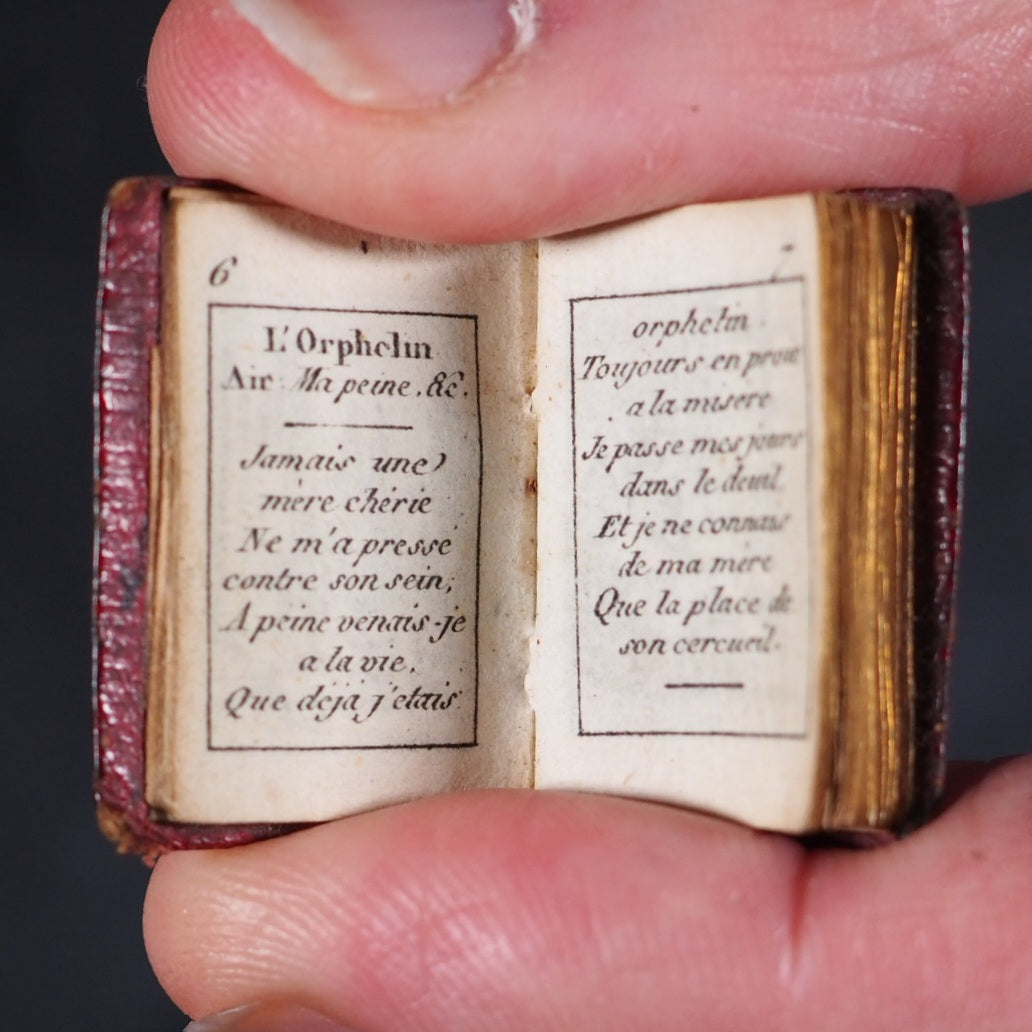 6
L'Orphelin
Air: Ma peine, &c.
Jamais une
mère chérie
Ne m'a pressé
contre son sein;
A peine venais-je
a la vie,
Que déjà j'etais
7
orphelin.
Toujours en proie
a la misere
Je passe mes jours
dans le deuil.
Et je ne connais
de ma mère
Que la place de
son cercueil.